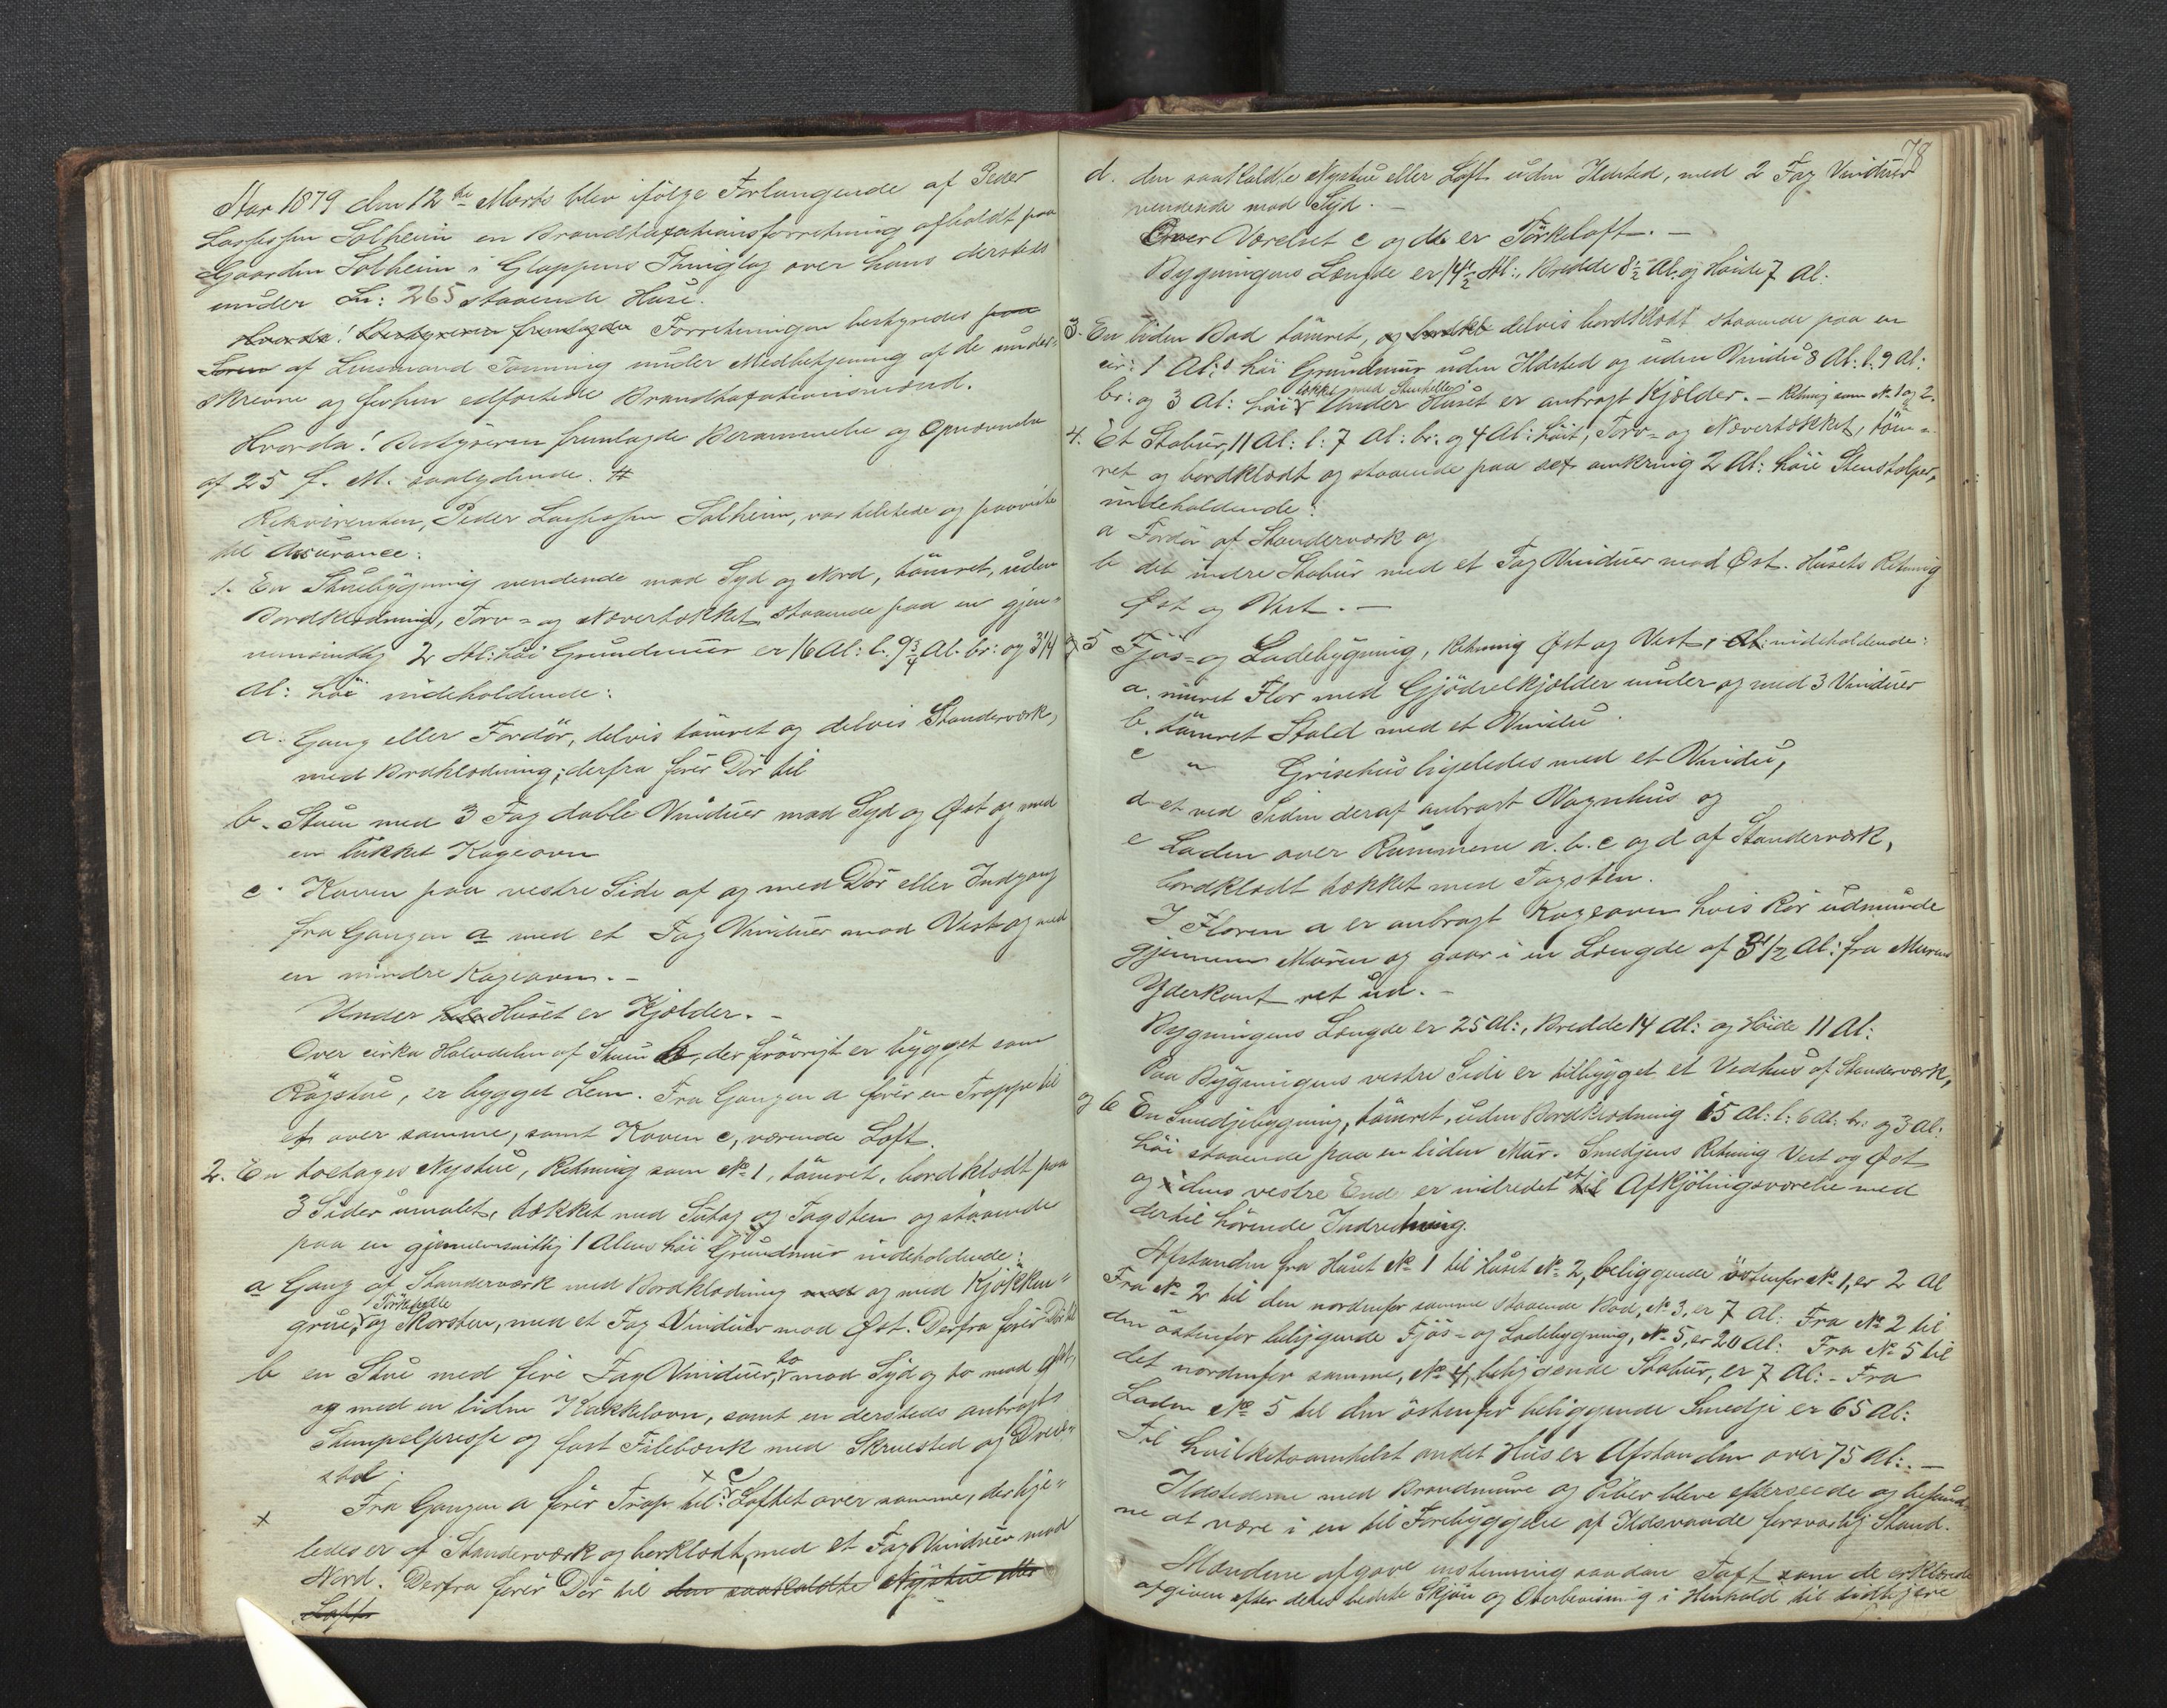 Aar 1879 den 12te Marts blev ifølge Forlangende af Peder
Lasseson Solheim en Brandtaxationsforretning afholdt paa
Gaarden Solheim i Gloppens Thinglag over hans dersteds
under Ln: 265 staaende Huse.
Hvorda! Bestyreren fremlagde Forretningen bestyredes paa
af Lensmand Tonning under Medbetjening af de under-
skrevne og forhen edfæstede Brandtaxationsmænd.
Hvorda! Bestyreren fremlagde Berammelse og Opnævnelse
af 25 f. M. saalydende. #
Rekvirenten, Peder Lasseson Solheim, var tilstede og paaviste
til Assurance:
1. En Stuebygning vendende mod Syd og Nord, tømret, uden
Bordklædning, Torv- og Nævertækket staaende paa en gjen-
nemsnitlig 2 Al: høi Grundmur er 16 Al: l. 9 3/4 Al. br: og 3 1/4
Al: høi indeholdende:
a. Gang eller Fordør, delvis tømret og delvis Standerværk,
med Bordklædning; derfra fører Dør til
b. Stuen med 3 Fag doble Vinduer mod Syd og Øst og med
en lukket Kogeovn
c. Koven paa vestre Side af og med Dør eller Indgang
fra Gangen a med et Fag Vinduer mod Vest og med
en mindre Kogeovn. -
Under hele Huset er Kjælder. -
Over cirka Halvdelen af Stuen b, der forøvrigt er bygget som
Røgstue, er bygget Lem. Fra Gangen a fører en Trappe til
et over samme, samt Koven c, værende Loft.
2. En toetages Nystue, Retning som No 1, tømret, bordklædt paa
3 Sider umalet, tækket med Sutag og Tagsten og staaende
paa en gjennemsnitlig 1 Alens høi Grundmur indeholdende:
a Gang af Standerværk med Bordklædning med og med Kjøkken-
grue, Tørkehelle og Skorsten, med et Fag Vinduer mod Øst. Derfra fører Dør til
b en Stue med fire Fag Vinduer, to mod Syd og to mod Øst,
og med en liden Kakkelovn, samt en dersteds anbragt
Stempelpresse og fast Filebænk med Skruested og Dreie-
stol.
x Fra Gangen a fører Trap til x c Loftet over samme, der lige-
ledes er af Standerværk og bordklædt, med et Fag Vinduer mod
Nord. Derfra fører Dør til den saakaldte Nystue eller
Loft
78
d. den saakaldte Nystue eller Loft uden Ildsted, med 2 Fag Vinduer
vendende mod Syd. -
Over Værelset c og d er Tørkeloft. -
Bygningens Længde er 14 1/2 Al:, Bredde 8 1/2 Al. og Høide 7 Al:
3. En liden Bod tømret, og bordkl delvis bordklædt staaende paa en
cir: 1 Al:s høi Grundmur uden Ildsted og uden Vindu 8 Al: l. 9 Al:
br: og 3 Al: høi tækket med Stenheller. Under Huset er anbragt Kjælder. - Retning som No 1 og 2.
4. Et Stabur, 11 Al: l: 7 Al: br: og 4 Al: høit, Torv- og Nævertækket, tøm-
ret og bordklædt og staaende paa sex omkring 2 Al: høie Stenstolper,
indeholdende:
a Fordør af Standerværk og
b det indre Stabur med et Fag Vinduer mod Øst. Husets Retning
Øst og Vest. -
og 5 Fjøs- og Ladebygning, Retning Øst og Vest, Al: indeholdende:
a. muret Flor med Gjødselkjælder under og med 3 Vinduer
b. tømret Stald med et Vindu.
c " Grisehus ligeledes med et Vindu,
d et ved Siden deraf anbragt Vognhus og
e Laden over Rummene a. b. c og d af Standerværk,
bordklædt tækket med Tagsten.
I Floren a er anbragt Kogeovn hvis Rør udmunde
gjennem Muren og gaar i en Længde af 3 1/2 Al: fra Murens
Yderkant ret ud. -
Bygningens Længde er 25 Al:, Bredde 14 Al: og Høide 11 Al:
Paa Bygningens vestre Side er tilbygget et Vedhus af Standerværk,
og 6 En Smedjebygning, tømret, uden Bordklædning 15 Al: l: 6 Al: br: og 3 Al:
høi staaende paa en liden Mur. Smedjens Retning Vest og Øst
og i dens vestre Ende er indredet et til Afkjølingsværelse med
dertil hørende Indretning.
Afstanden fra Huset No 1 til Huset No 2, beliggende østenfor No 1, er 2 Al
Fra No 2 til den nordenfor samme staaende Bod, No 3, er 7 Al: Fra No 2 til
den østenfor beliggende Fjøs- og Ladebygning, No 5, er 20 Al: Fra No 5 til
det nordenfor samme, No 4, beliggende Stabur, er 7 Al: - Fra
Laden No 5 til den østenfor beliggende Smedje er 65 Al:
Til hvilketsomhelst andet Hus er Afstanden over 75 Al:. -
Ildstederne med Brandmure og Piber bleve efterseede og befund-
ne at være i en til Forebyggelse af Ildsvaade forsvarlig Stand.
Mændene afgave enstemmig saadan Taxt som de erklærede
afgiven efter deres bedste Skjøn og Overbevisning i Henhold til tidligere